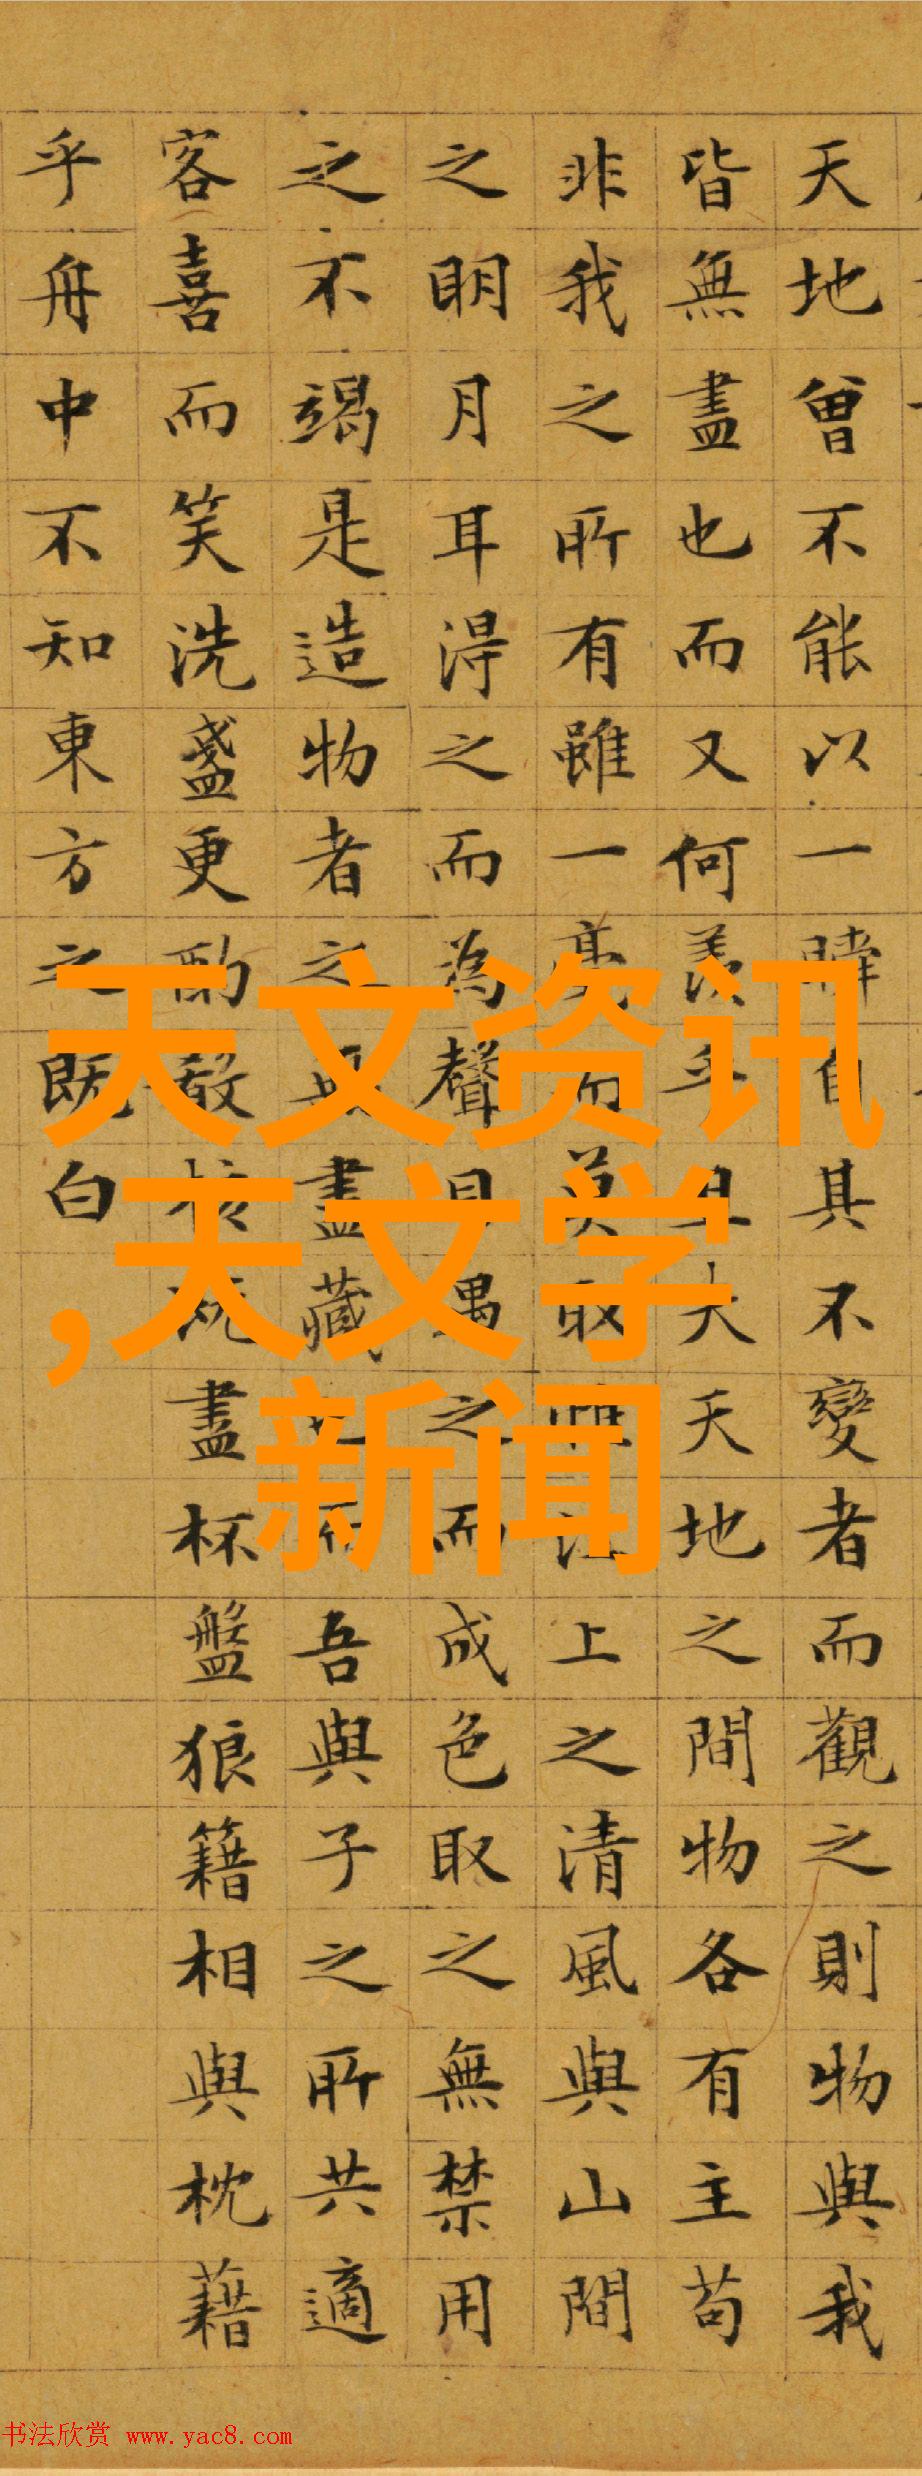 天地曾不能以一瞬自其不變者而觀之則物與我
皆無盡也而又何羨乎且夫天地之間物各有主苟
非我之所有雖一毫而莫取惟江上之清風與山間
之明月耳得之而為聲目遇之而成色取之無禁用
之不竭是造物者之無盡藏也而吾與子之所共適
客喜而笑洗盞更酌殽核既盡杯盤狼籍相與枕藉
乎舟中不知東方之既白
天文资讯
,天文学
新闻
书法欣赏 www.yac8.com